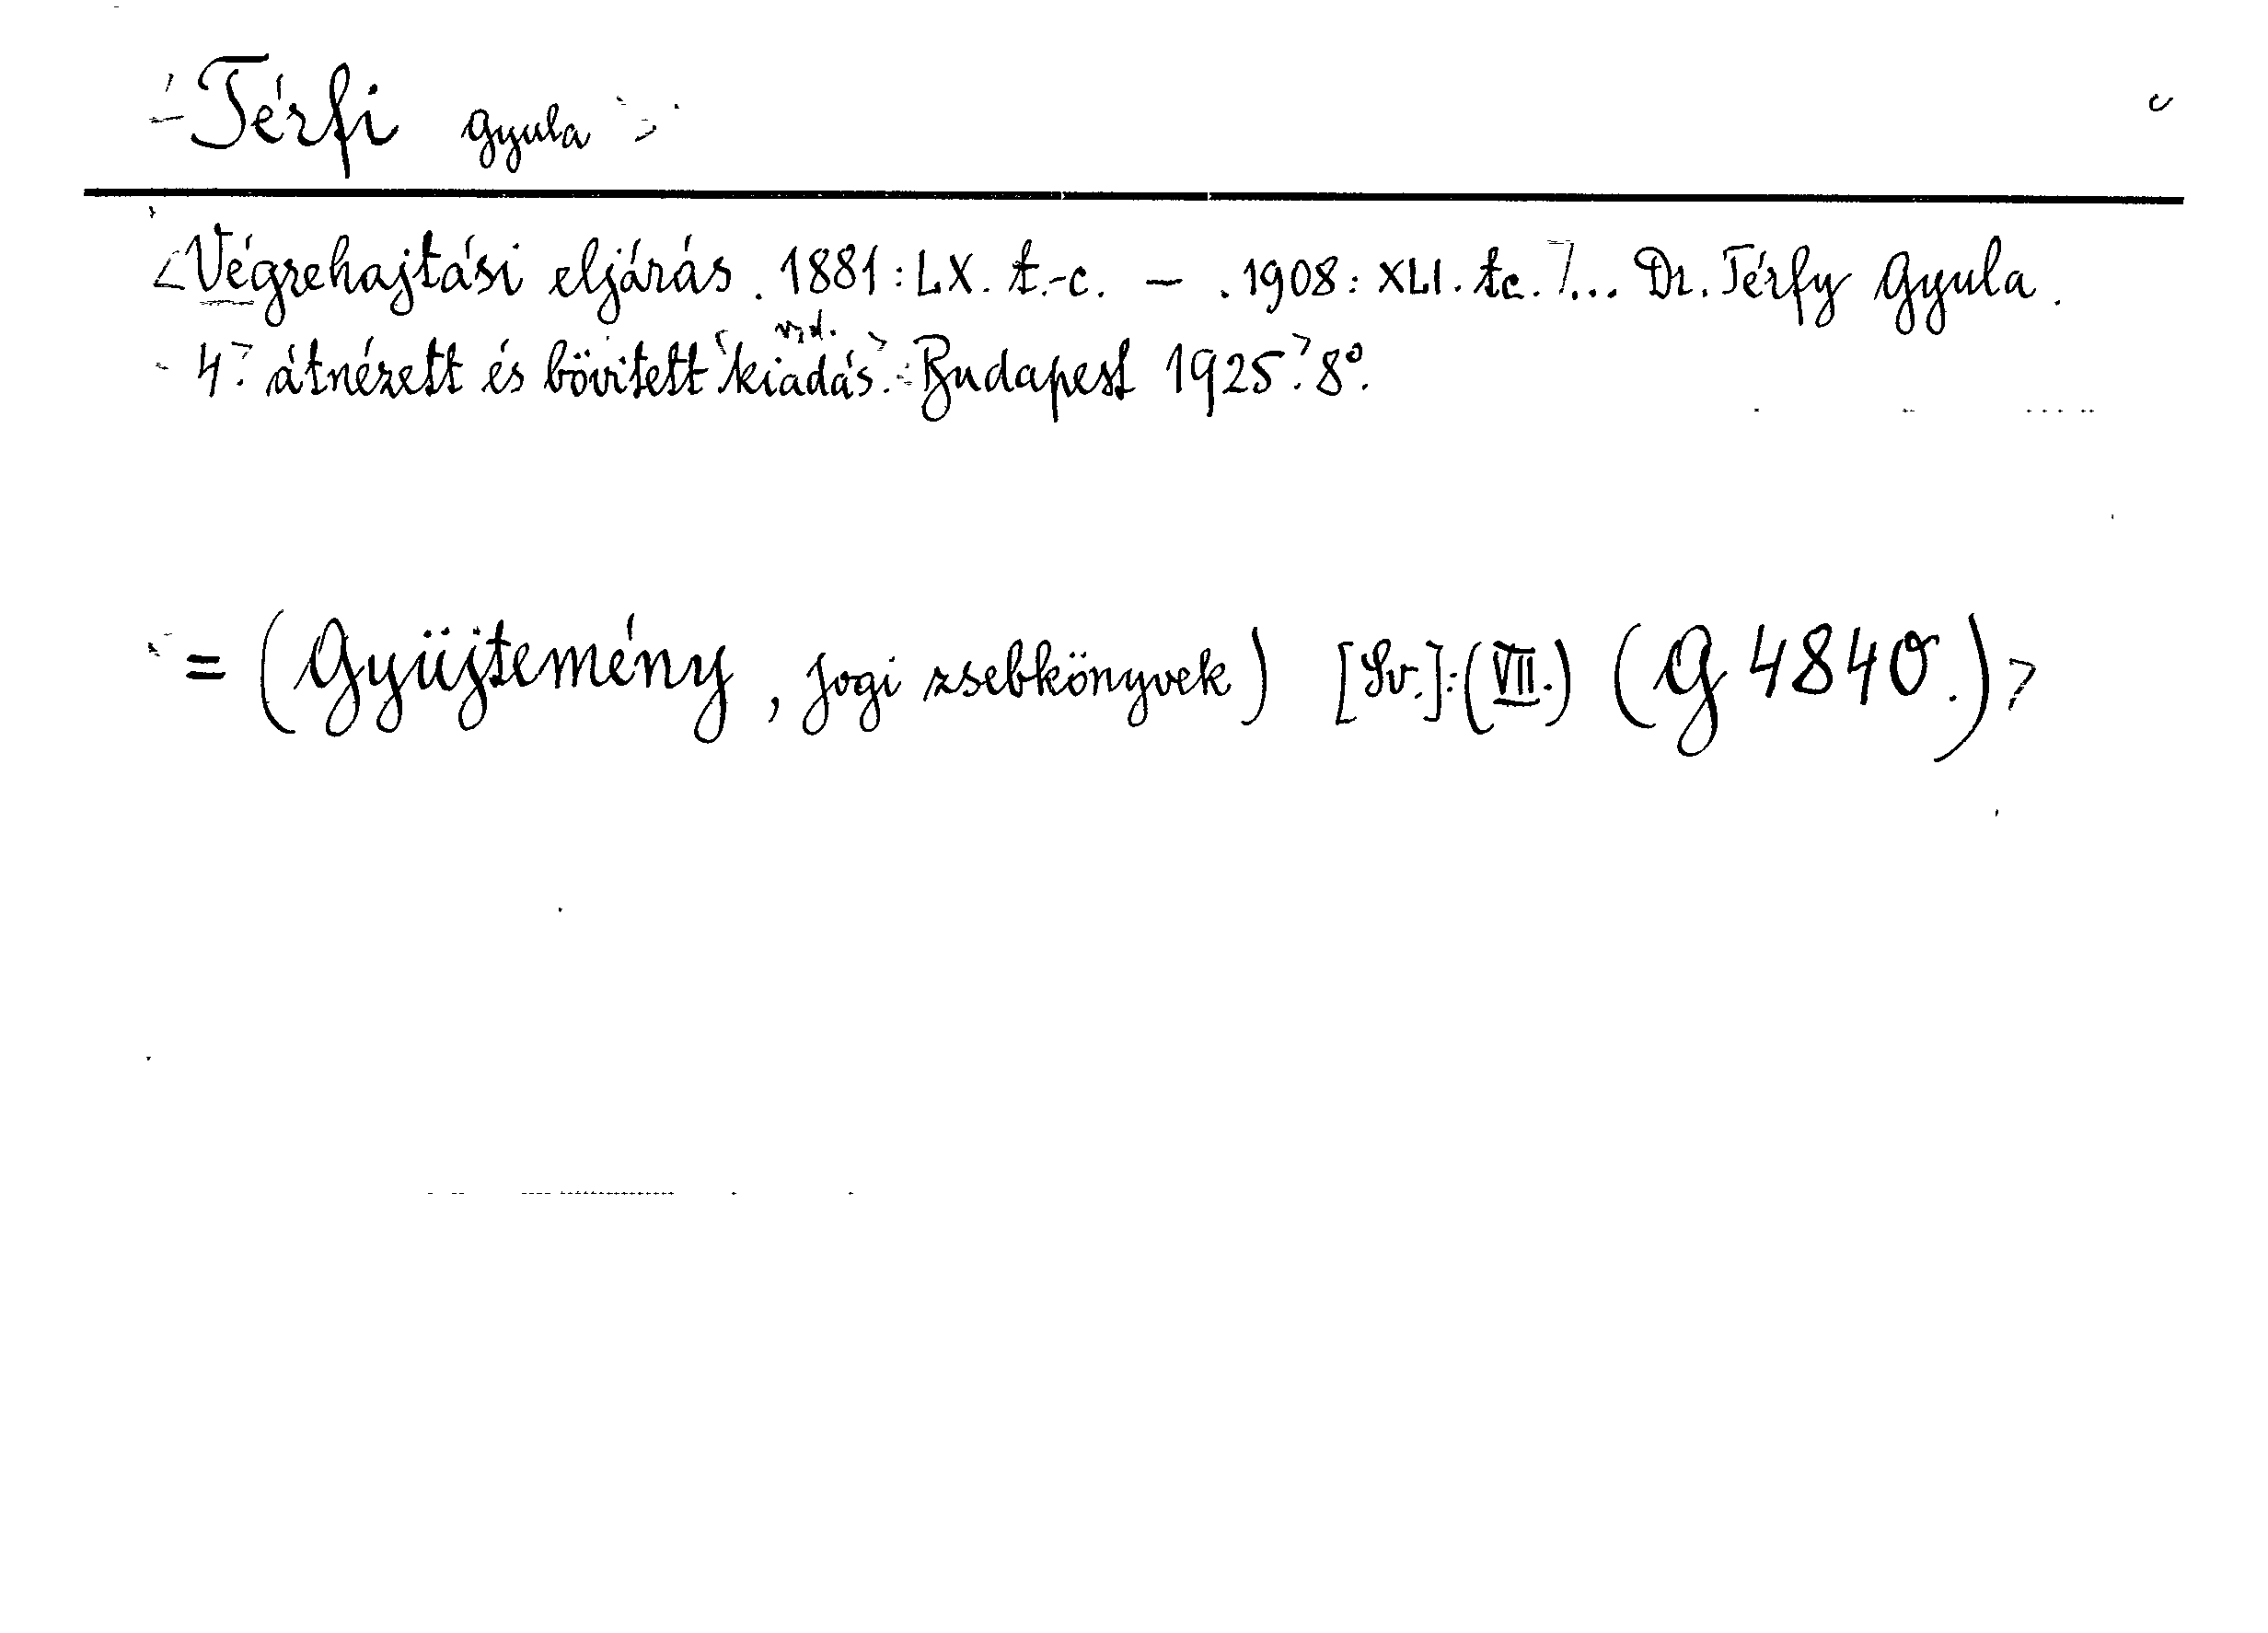 Térfi Gyula
<Végrehajtási eljárás. 1881: LX. t.-c. – . 1908: XLI. tc.]... Dr. Térfy Gyula.
4. átnézett és bővített kiadás. Budapest 1925. 8°.
= (Gyüjtemény, jogi zsebkönyvek) [Sv.]: (VII.) (G 4840.)>